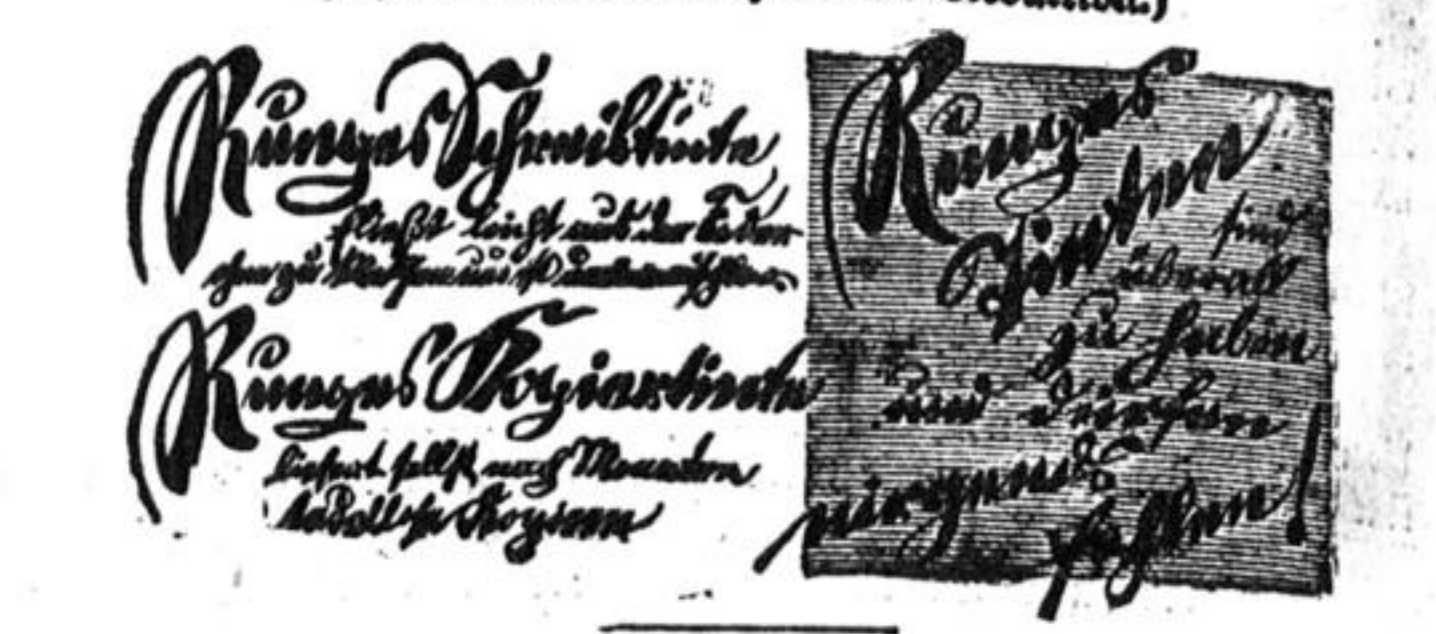 Runges Schreibtinte
fließt leicht aus der Feder
ohne zu klecksen und ist unverwischbar.
Runges Kopiertinte
liefert selbst nach Monaten
tadellose Kopieen
Runges
Tinten
sind
überall
zu haben
und dürfen
nirgends
fehlen!